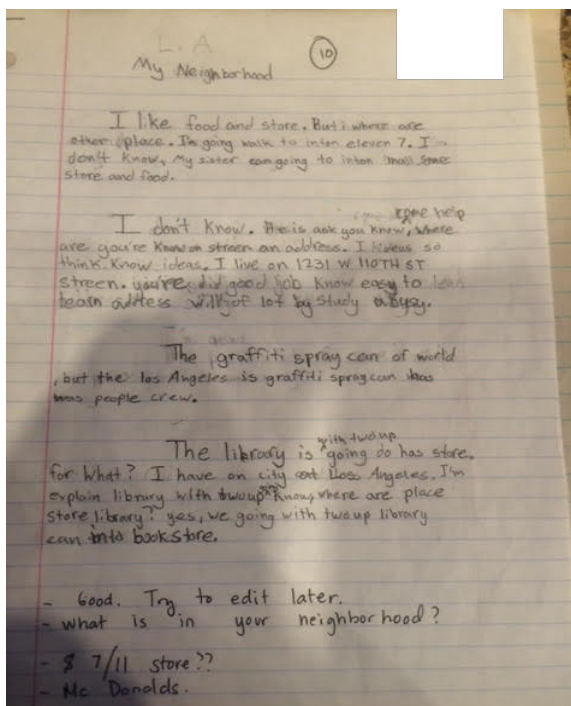 L.A
10
My Neighborhood
I like food and store. But i where are
other place. I'm going walk to inton eleven 7. I
don't know, My sister going to inton small some
store and food.
I don't know. He is ask you know, where
some help
are you're know on streen an address. I ideus so
think. Know ideas. I live on 1231 W 110TH ST
streen. you're did good job know easy to
learn address of lot by study
The graffiti spray can of world
, but the los Angeles is graffiti spray can has
people crew.
The library is going do has store.
with two up
for what? I have on city Loss Angeles. I'm
explain library with two up know, where are place
store library? yes, we going with two up library
can into bookstore.
- Good. Try to edit later.
- what is in your neighborhood?
- 7/11 store??
- Mc Donalds.